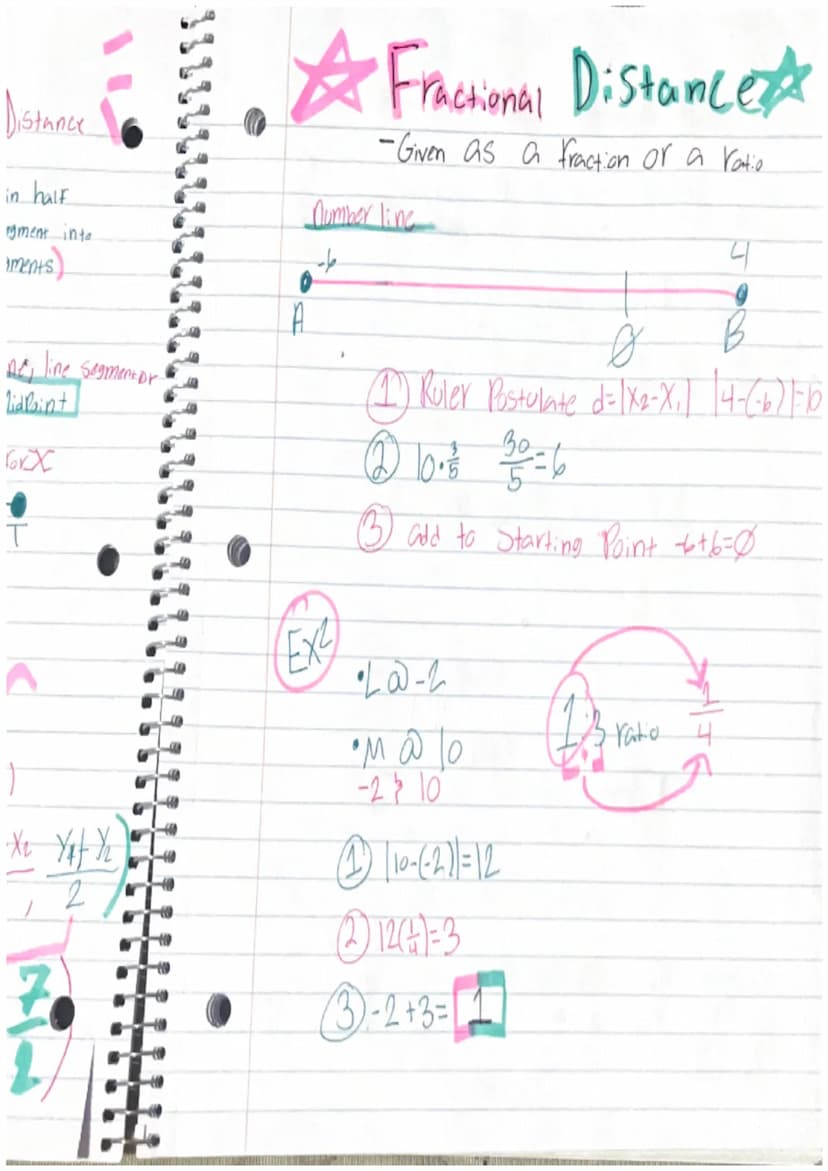 Distance
in half
gment into
ments)
ne, line segment or
MidPoint
for X
T
)
x2 , Y1 + Y2
2
7
2
Fractional Distance
- Given as a fraction or a ratio
Number line
-6 4
A 0 B
1 Ruler Postulate d=|X2-X1| |4-(-6)|=10
2 10·3/5 30/5=6
3 add to Starting Point -6+6=0
Ex2
•L @ -2
•M @ 10
-2 10
1:3 ratio 1/4
1 |10-(-2)|=12
2 12(1/4)=3
3 -2+3= 1